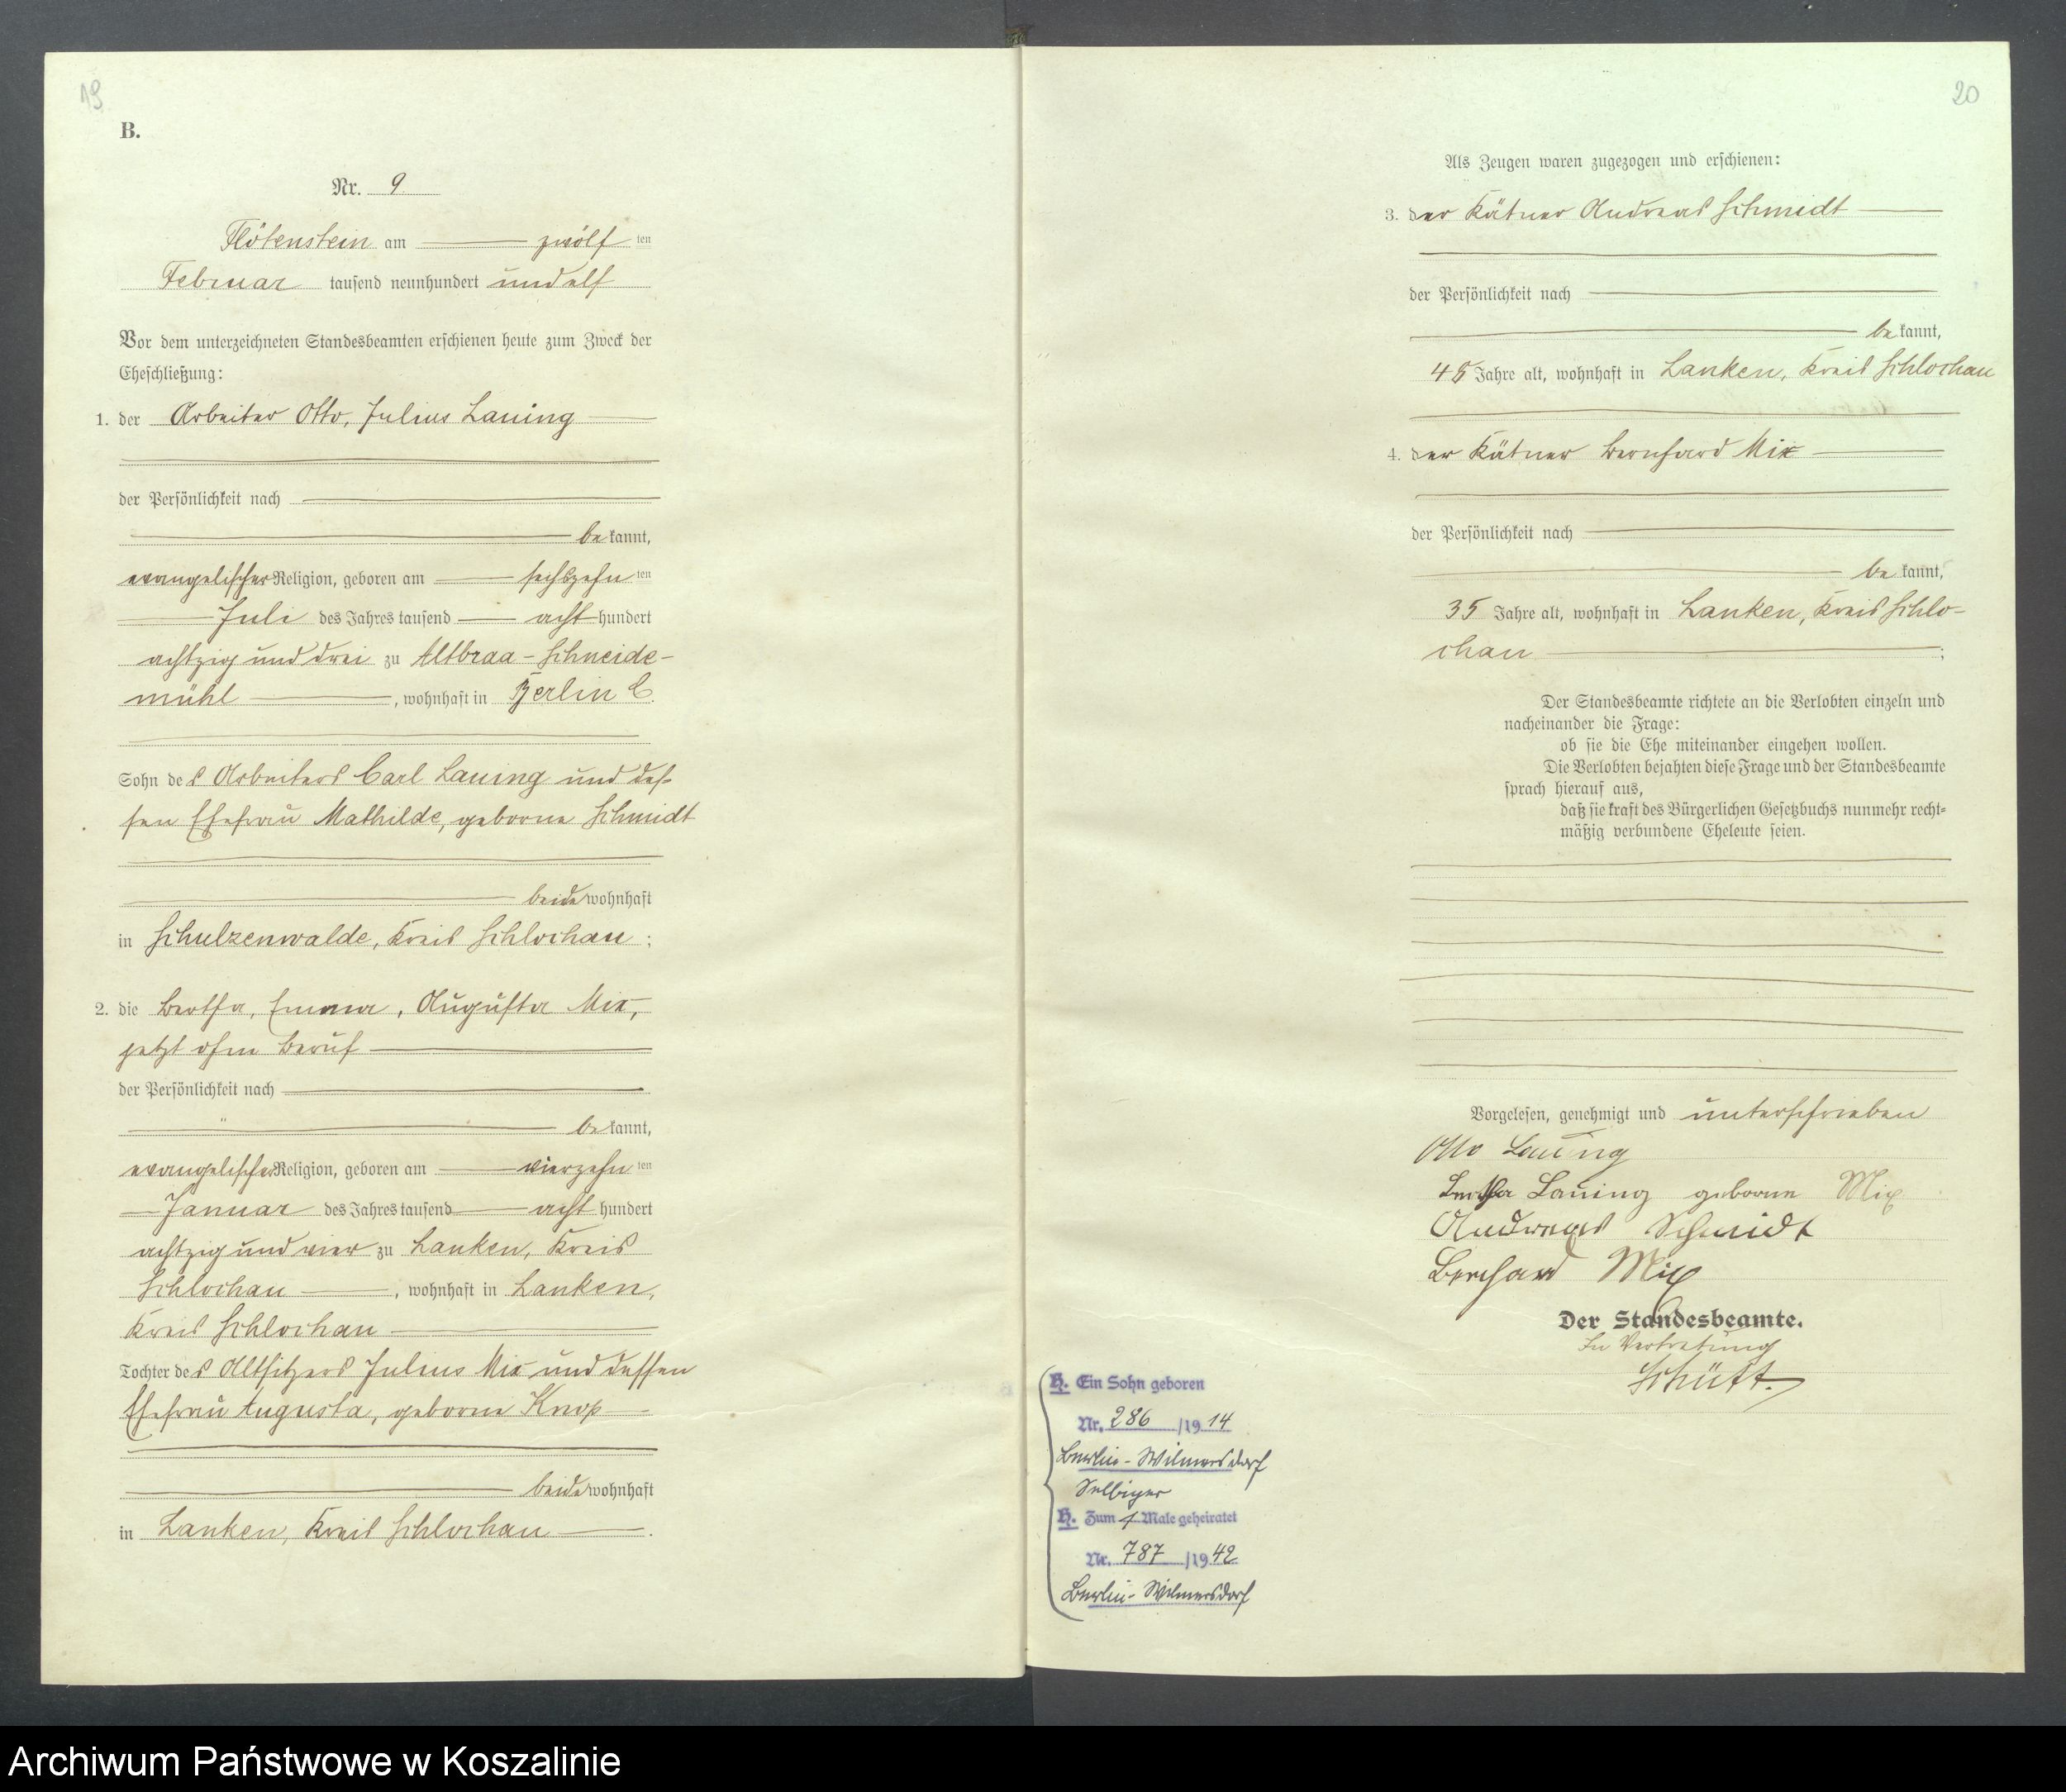 19
B.
Nr. 9
Flötenstein am zwölf ten
Februar tausend neunhundert und elf
Vor dem unterzeichneten Standesbeamten erschienen heute zum Zweck der
Eheschließung:
1. der Arbeiter Otto, Julius Lauing
der Persönlichkeit nach
be kannt,
evangelischer Religion, geboren am sechszehn ten
Juli des Jahres tausend acht hundert
achtzig und drei zu Altbraa-Schneide-
mühl , wohnhaft in Berlin C.
Sohn des Arbeiters Carl Lauing und des-
sen Ehefrau Mathilde, geborne Schmidt
beide wohnhaft
in Schulzenwalde, Kreis Schlochau ;
2. die Bertha, Emma, Augusta Mix,
jetzt ohne Beruf
der Persönlichkeit nach
be kannt,
evangelischer Religion, geboren am vierzehn ten
Januar des Jahres tausend acht hundert
achtzig und vier zu Lanken, Kreis
Schlochau , wohnhaft in Lanken,
Kreis Schlochau
Tochter des Altsitzers Julius Mix und dessen
Ehefrau Augusta, geborne Knop
beide wohnhaft
in Lanken, Kreis Schlochau .
20
Als Zeugen waren zugezogen und erschienen:
3. der Kätner Andreas Schmidt
der Persönlichkeit nach
be kannt,
48 Jahre alt, wohnhaft in Lanken, Kreis Schlochau
4. der Kätner Bernhard Mix
der Persönlichkeit nach
be kannt,
35 Jahre alt, wohnhaft in Lanken, Kreis Schlo-
chau ;
Der Standesbeamte richtete an die Verlobten einzeln und
nacheinander die Frage:
ob sie die Ehe miteinander eingehen wollen.
Die Verlobten bejahten diese Frage und der Standesbeamte
sprach hierauf aus,
daß sie kraft des Bürgerlichen Gesetzbuchs nunmehr recht-
mäßig verbundene Eheleute seien.
Vorgelesen, genehmigt und unterschrieben
Otto Lauing
Bertha Lauing geborne Mix
Andreas Schmidt
Bernhard Mix
Der Standesbeamte.
In Vertretung
Schütt.
H. Ein Sohn geboren
Nr. 286 /19 14
Berlin-Wilmersdorf
Selbiger
H. Zum 1 Male geheiratet
Nr. 787 /19 42
Berlin-Wilmersdorf
Archiwum Państwowe w Koszalinie